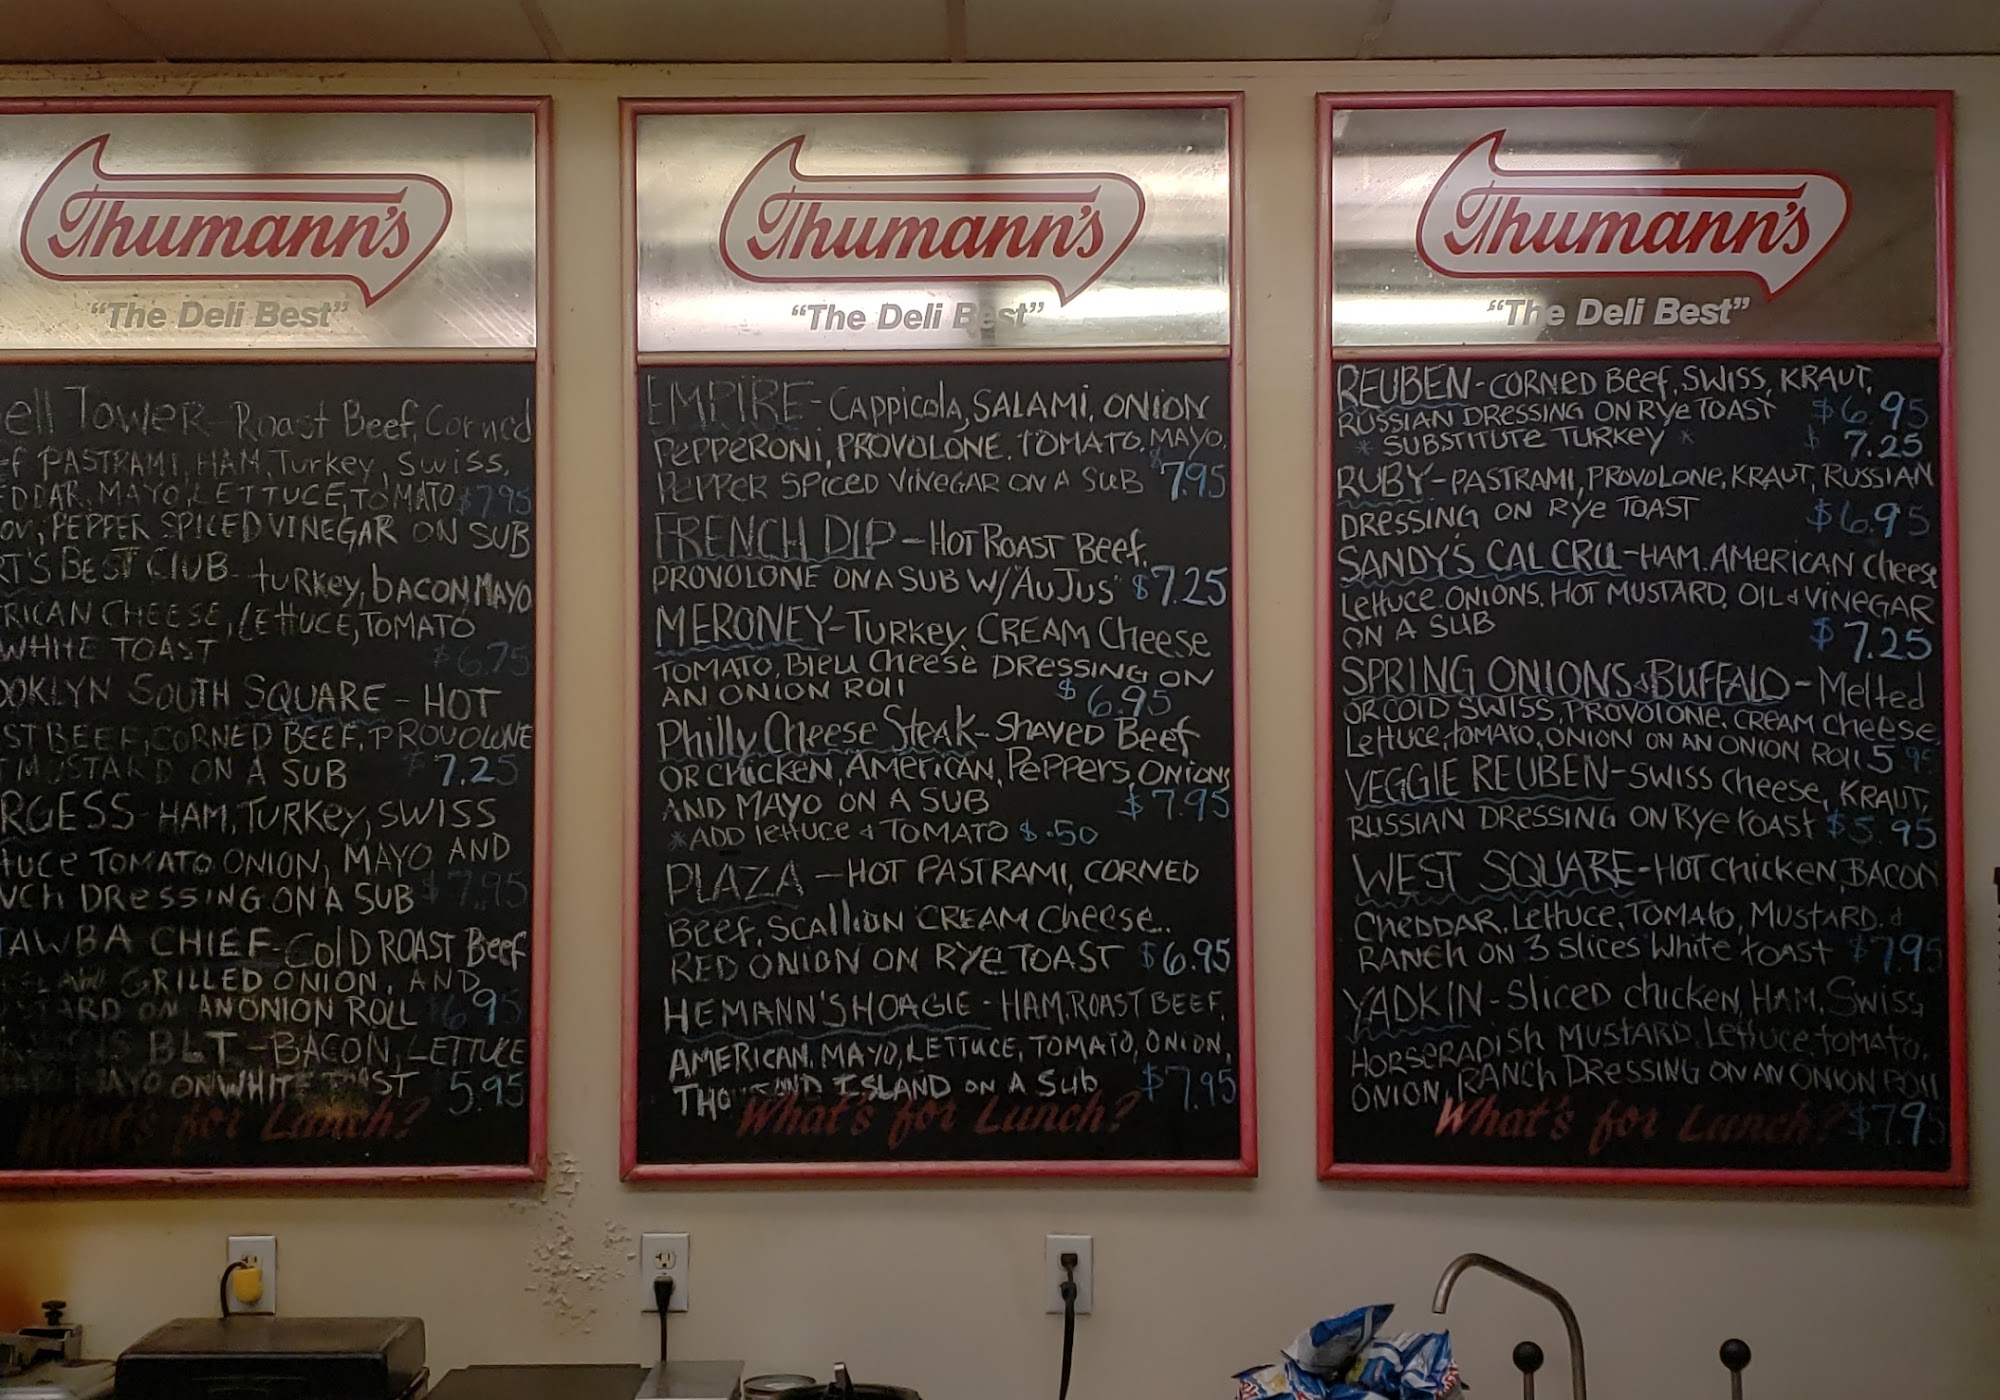 Thumann's
"The Deli Best"
ell TOWER - Roast Beef, Corned
ef PASTRAMI, HAM, Turkey, Swiss,
EDDAR, MAYO, LETTUCE, TOMATO $7.95
OV, PEPPER SPICED VINEGAR ON SUB
RT'S BEST CLUB - turkey, bacon, MAYO
RICAN CHEESE, LETTUCE, TOMATO
WHITE TOAST $6.75
OOKLYN SOUTH SQUARE - HOT
ST BEEF, CORNED BEEF, PROVOLONE
MUSTARD ON A SUB $7.25
RGESS - HAM, TURKEY, SWISS
tuce TOMATO ONION, MAYO AND
NCH DRESSING ON A SUB $7.95
TAWBA CHIEF - Cold ROAST Beef
GRILLED ONION, AND
STARD ON AN ONION ROLL $6.95
BLT - BACON, LETTUCE
MAYO ON WHITE TOAST 5.95
What's for Lunch?
Thumann's
"The Deli Best"
EMPIRE - CAPPICOLA, SALAMI, ONION
PEPPERONI, PROVOLONE, TOMATO, MAYO,
PEPPER SPICED VINEGAR ON A SUB $7.95
FRENCH DIP - HOT ROAST Beef,
PROVOLONE ON A SUB W/ "AU JUS" $7.25
MERONEY - TURKEY, CREAM Cheese
TOMATO, BLEU CHEESE DRESSING ON
AN ONION ROLL $6.95
Philly Cheese Steak - SHAVED Beef
OR CHICKEN, AMERICAN, PEPPERS, ONIONS
AND MAYO ON A SUB $7.95
*ADD LETTUCE & TOMATO $.50
PLAZA - HOT PASTRAMI, CORNED
Beef, SCALLION CREAM Cheese,
RED ONION ON RYE TOAST $6.95
HEMANN'S HOAGIE - HAM, ROAST BEEF,
AMERICAN, MAYO, LETTUCE, TOMATO, ONION,
THOUSAND ISLAND ON A SUB $7.95
What's for Lunch?
Thumann's
"The Deli Best"
REUBEN - CORNED Beef, SWISS, KRAUT,
RUSSIAN DRESSING ON RYE TOAST $6.95
* SUBSTITUTE TURKEY * $7.25
RUBY - PASTRAMI, PROVOLONE, KRAUT, RUSSIAN
DRESSING ON RYE TOAST $6.95
SANDY'S CAL CRU - HAM, AMERICAN Cheese
LETTUCE, ONIONS, HOT MUSTARD, OIL & VINEGAR
ON A SUB $7.25
SPRING ONIONS & BUFFALO - Melted
OR COLD SWISS, PROVOLONE, CREAM CHEESE,
LETTUCE, TOMATO, ONION ON AN ONION ROLL 5.95
VEGGIE REUBEN - SWISS Cheese, KRAUT,
RUSSIAN DRESSING ON RYE TOAST $5.95
WEST SQUARE - HOT CHICKEN, BACON
CHEDDAR, LETTUCE, TOMATO, MUSTARD, &
RANCH ON 3 SLICES WHITE TOAST $7.95
YADKIN - Sliced chicken, HAM, SWISS
HORSERADISH MUSTARD, LETTUCE, TOMATO,
ONION, RANCH DRESSING ON AN ONION ROLL
What's for Lunch? $7.95